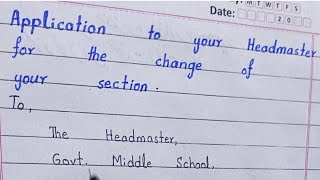 M T W T F S
Date: 20
Application to your Headmaster
for the change of
your section.
To,
The Headmaster,
Govt. Middle School,